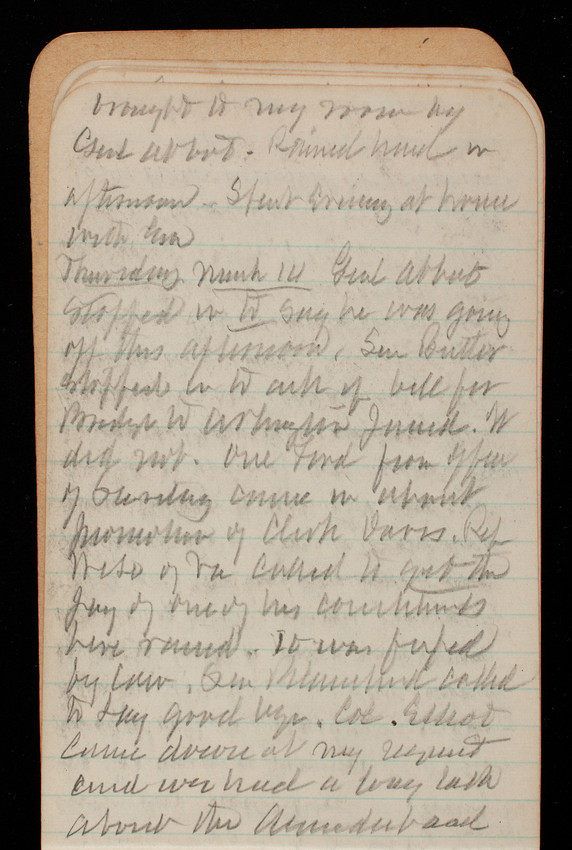 brought to my room by
Genl Abbot. Rained hard in
afternoon. Spent Evening at home
with Eva
Thursday March 14 Genl Abbot
stopped in to say he was going
off this afternoon. Sen Butler
stopped in to ask if bill for
Bridge to Arlington passed. It
did not. One Ford from office
of came in about
promotion of Clerk Davis. Rep
Wise of Va called to get the
pay of one of his constituents
here raised. It was fixed
by law. Gen called
to say good bye. Col. Elliot
came down at my request
and we had a long talk
about the